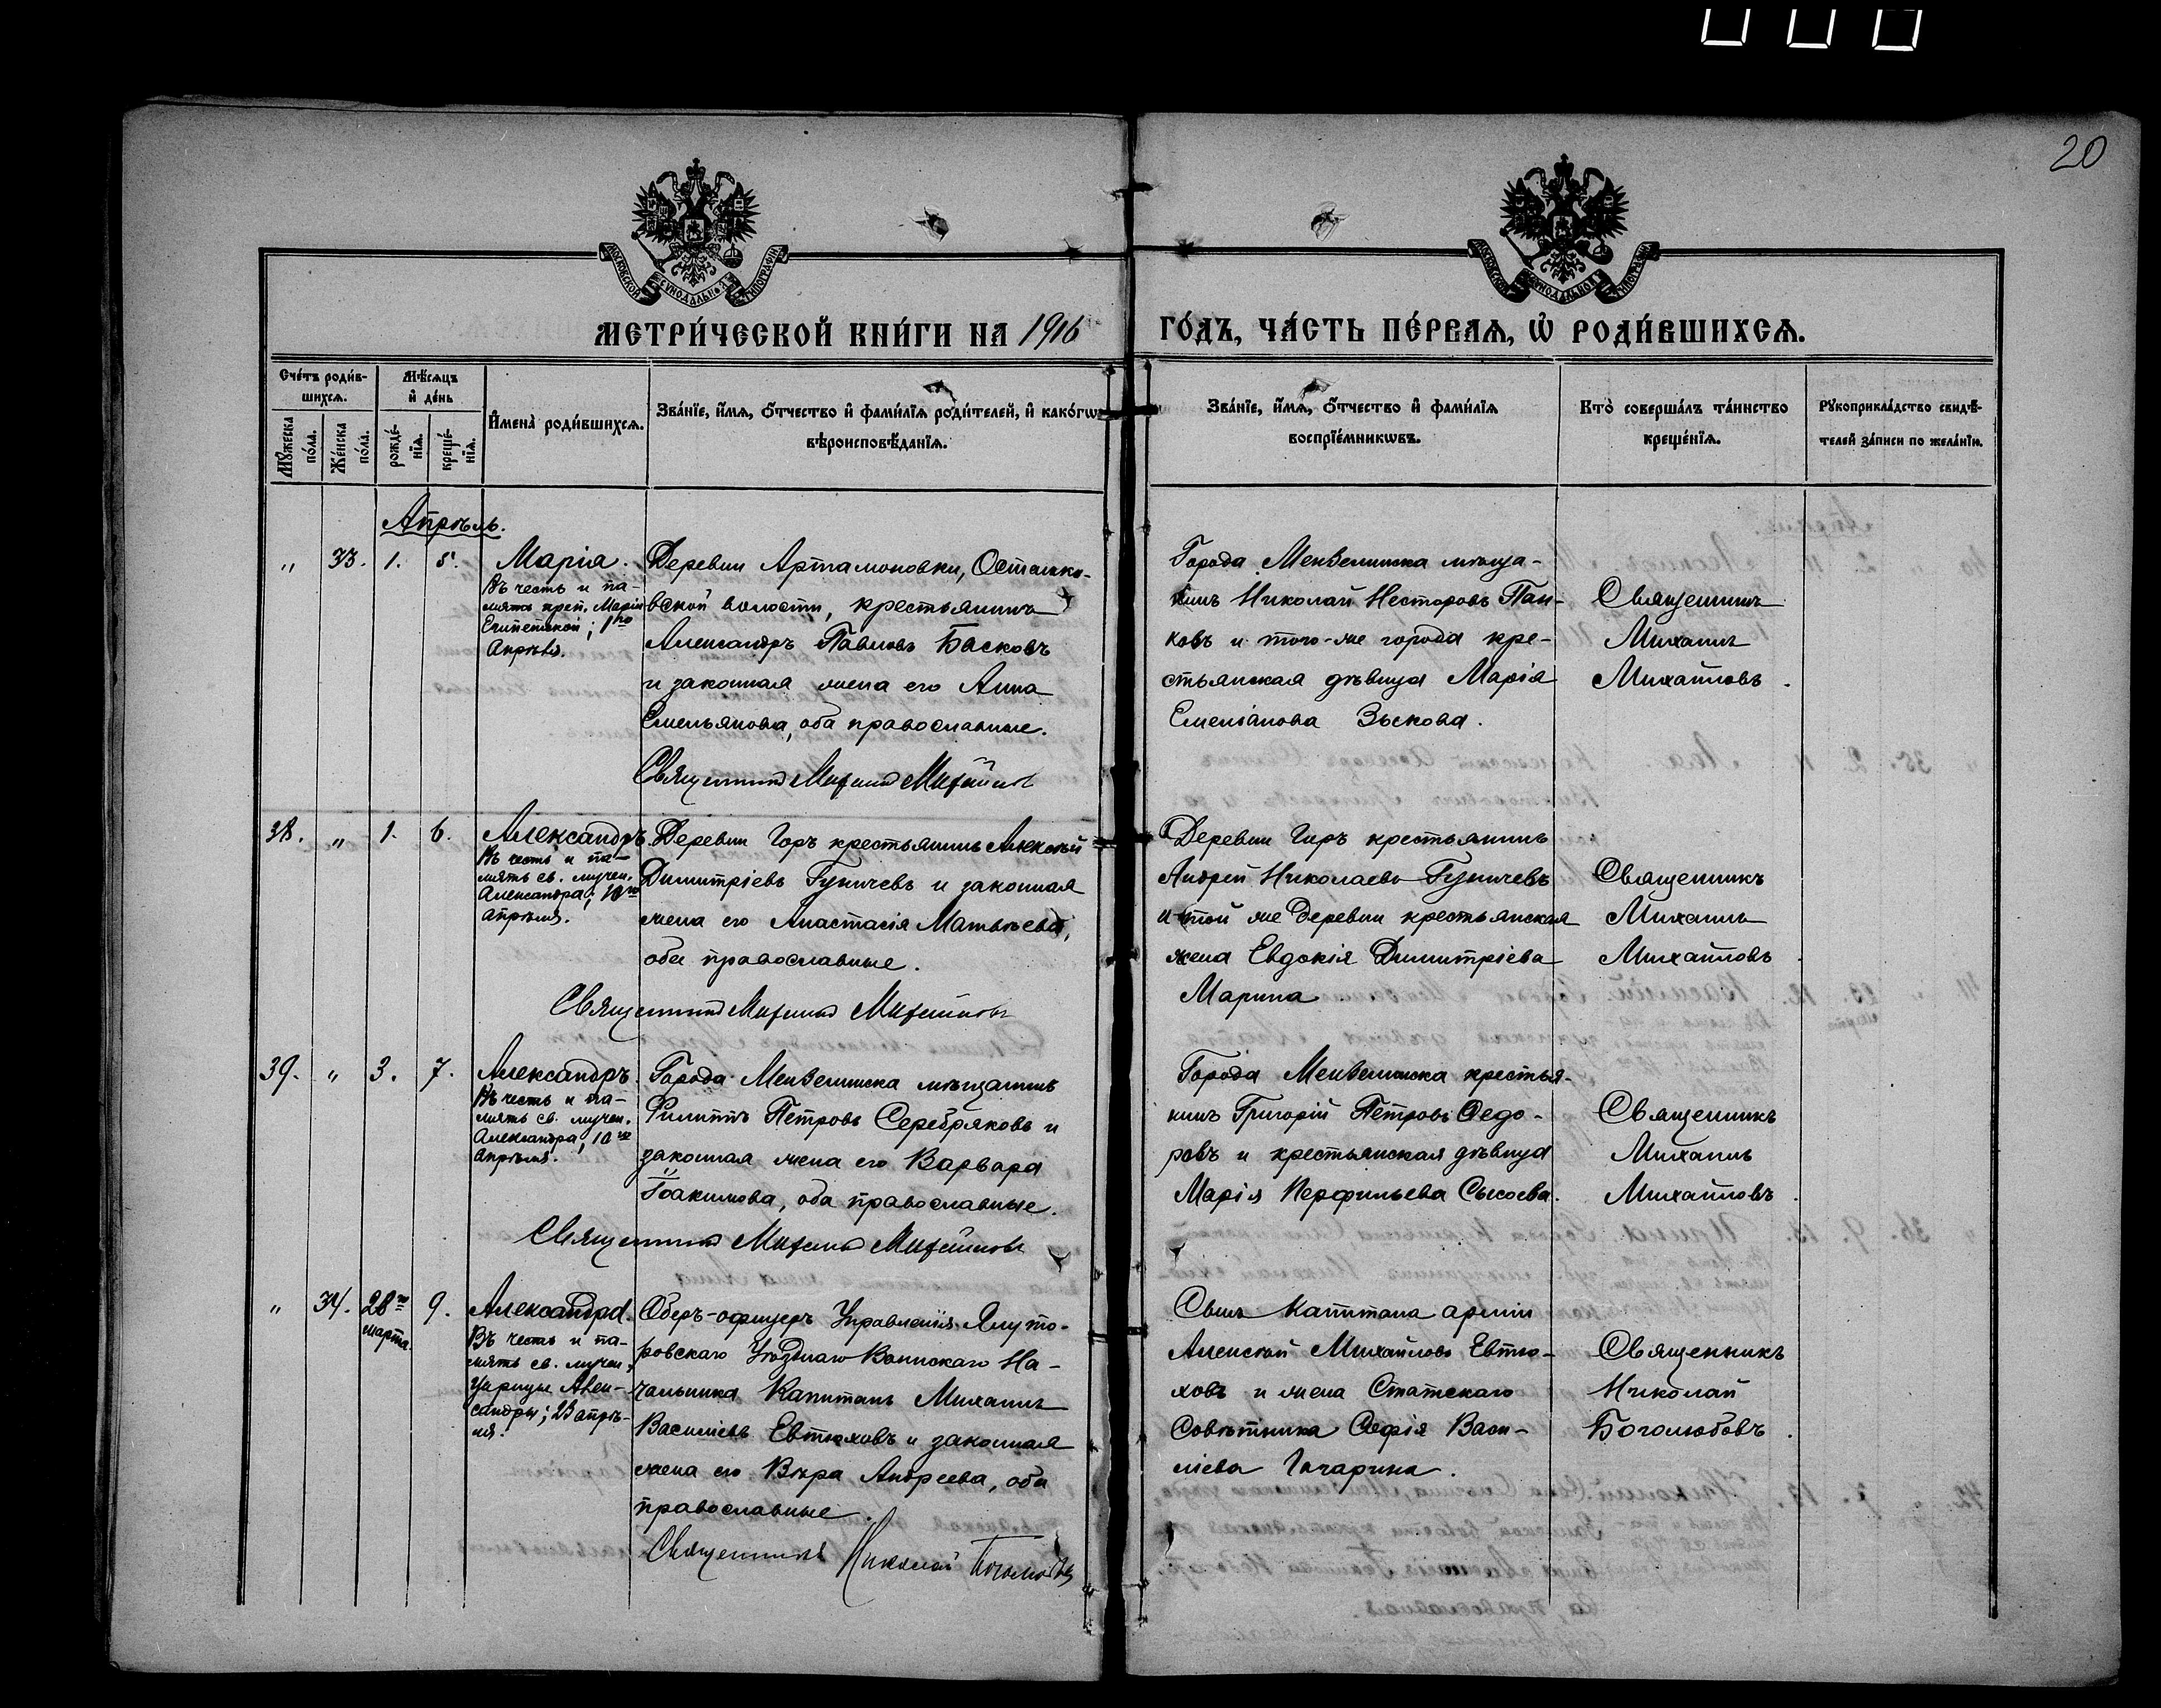 20
МОСКОВСКОЙ СѴНОДАЛЬНОЙ ТИПОГРАФІИ
МОСКОВСКОЙ СѴНОДАЛЬНОЙ ТИПОГРАФІИ
МЕТРИ́ЧЕСКОЙ КНИ́ГИ НА 1916 ГО́ДЪ, ЧА́СТЬ ПЕ́РВАѦ, Ѽ РОДИ́ВШИХСѦ.
Сче́тъ роди́в-
шихсѧ.
Мꙋ́жеска
по́ла.
Же́нска
по́ла.
Мѣ́сѧцъ
и҆ де́нь
рожде́-
нїѧ.
креще́-
нїѧ.
И҆мена̀ роди́вшихсѧ.
Зва́нїе, и҆́мѧ, ѻ҆́тчество и҆ фами́лїѧ роди́телей, и҆ како́гѡ
вѣроисповѣ́данїѧ.
Зва́нїе, и҆́мѧ, ѻ҆́тчество и҆ фами́лїѧ
воспрїе́мникѡвъ.
Кто̀ соверша́лъ та́инство
креще́нїѧ.
Рꙋкоприкла́дство свидѣ́-
телей за́писи по жела́нїю.
Апрѣль.
„ 33. 1. 5.
Марія.
Въ честь и па-
мять преп. Маріи
Египетской; 1го
Апрѣля.
Деревни Артамоновки, Осташко-
вской волости, крестьянинъ
Александръ Павловъ Басковъ
и законная жена его Анна
Емельянова, оба православные.
Священникъ Михаилъ Михайловъ
Города Мензелинска мѣща-
нинъ Николай Несторовъ Пан-
ковъ и того-же города кре-
стьянская дѣвица Марія
Емеліанова Зыскова.
Священникъ
Михаилъ
Михайловъ.
38. „ 1. 6.
Александръ
Въ честь и па-
мять св. мучен.
Александра; 10го
апрѣля.
Деревни Горъ крестьянинъ Алексѣй
Димитріевъ Гуничевъ и законная
жена его Анастасія Матвѣева,
оба православные.
Священникъ Михаилъ Михайловъ
Деревни Горъ крестьянинъ
Андрей Николаевъ Гуничевъ
и той же деревни крестьянская
жена Евдокія Димитріева
Марина
Священникъ
Михаилъ
Михайловъ.
39. „ 3. 7.
Александръ.
Въ честь и па-
мять св. мучен.
Александра; 10го
Апрѣля.
Города Мензелинска мѣщанинъ
Филиппъ Петровъ Серебряковъ и
законная жена его Варвара
Іоакимова, оба православные.
Священникъ Михаилъ Михайловъ
Города Мензелинска крестья-
нинъ Григорій Петровъ Ѳедо-
ровъ и крестьянская дѣвица
Марія Перфильева Сысоева.
Священникъ
Михаилъ
Михайловъ.
„ 34. 28го
марта
9.
Александра.
Въ честь и па-
мять св. мучен.
Царицы Алек-
сандры; 23 апрѣ-
ля.
Оберъ-офицеръ Управленія Ялуто-
ровскаго Уѣзднаго Воинскаго На-
чальника Капитанъ Михаилъ
Василіевъ Евтюховъ и законная
жена его Вѣра Андреева, оба
православные.
Священникъ Николай Боголюбовъ
Сынъ капитана арміи
Алексѣй Михайловъ Евтю-
ховъ и жена Статскаго
Совѣтника Софія Васи-
ліева
Священникъ
Николай
Боголюбовъ.